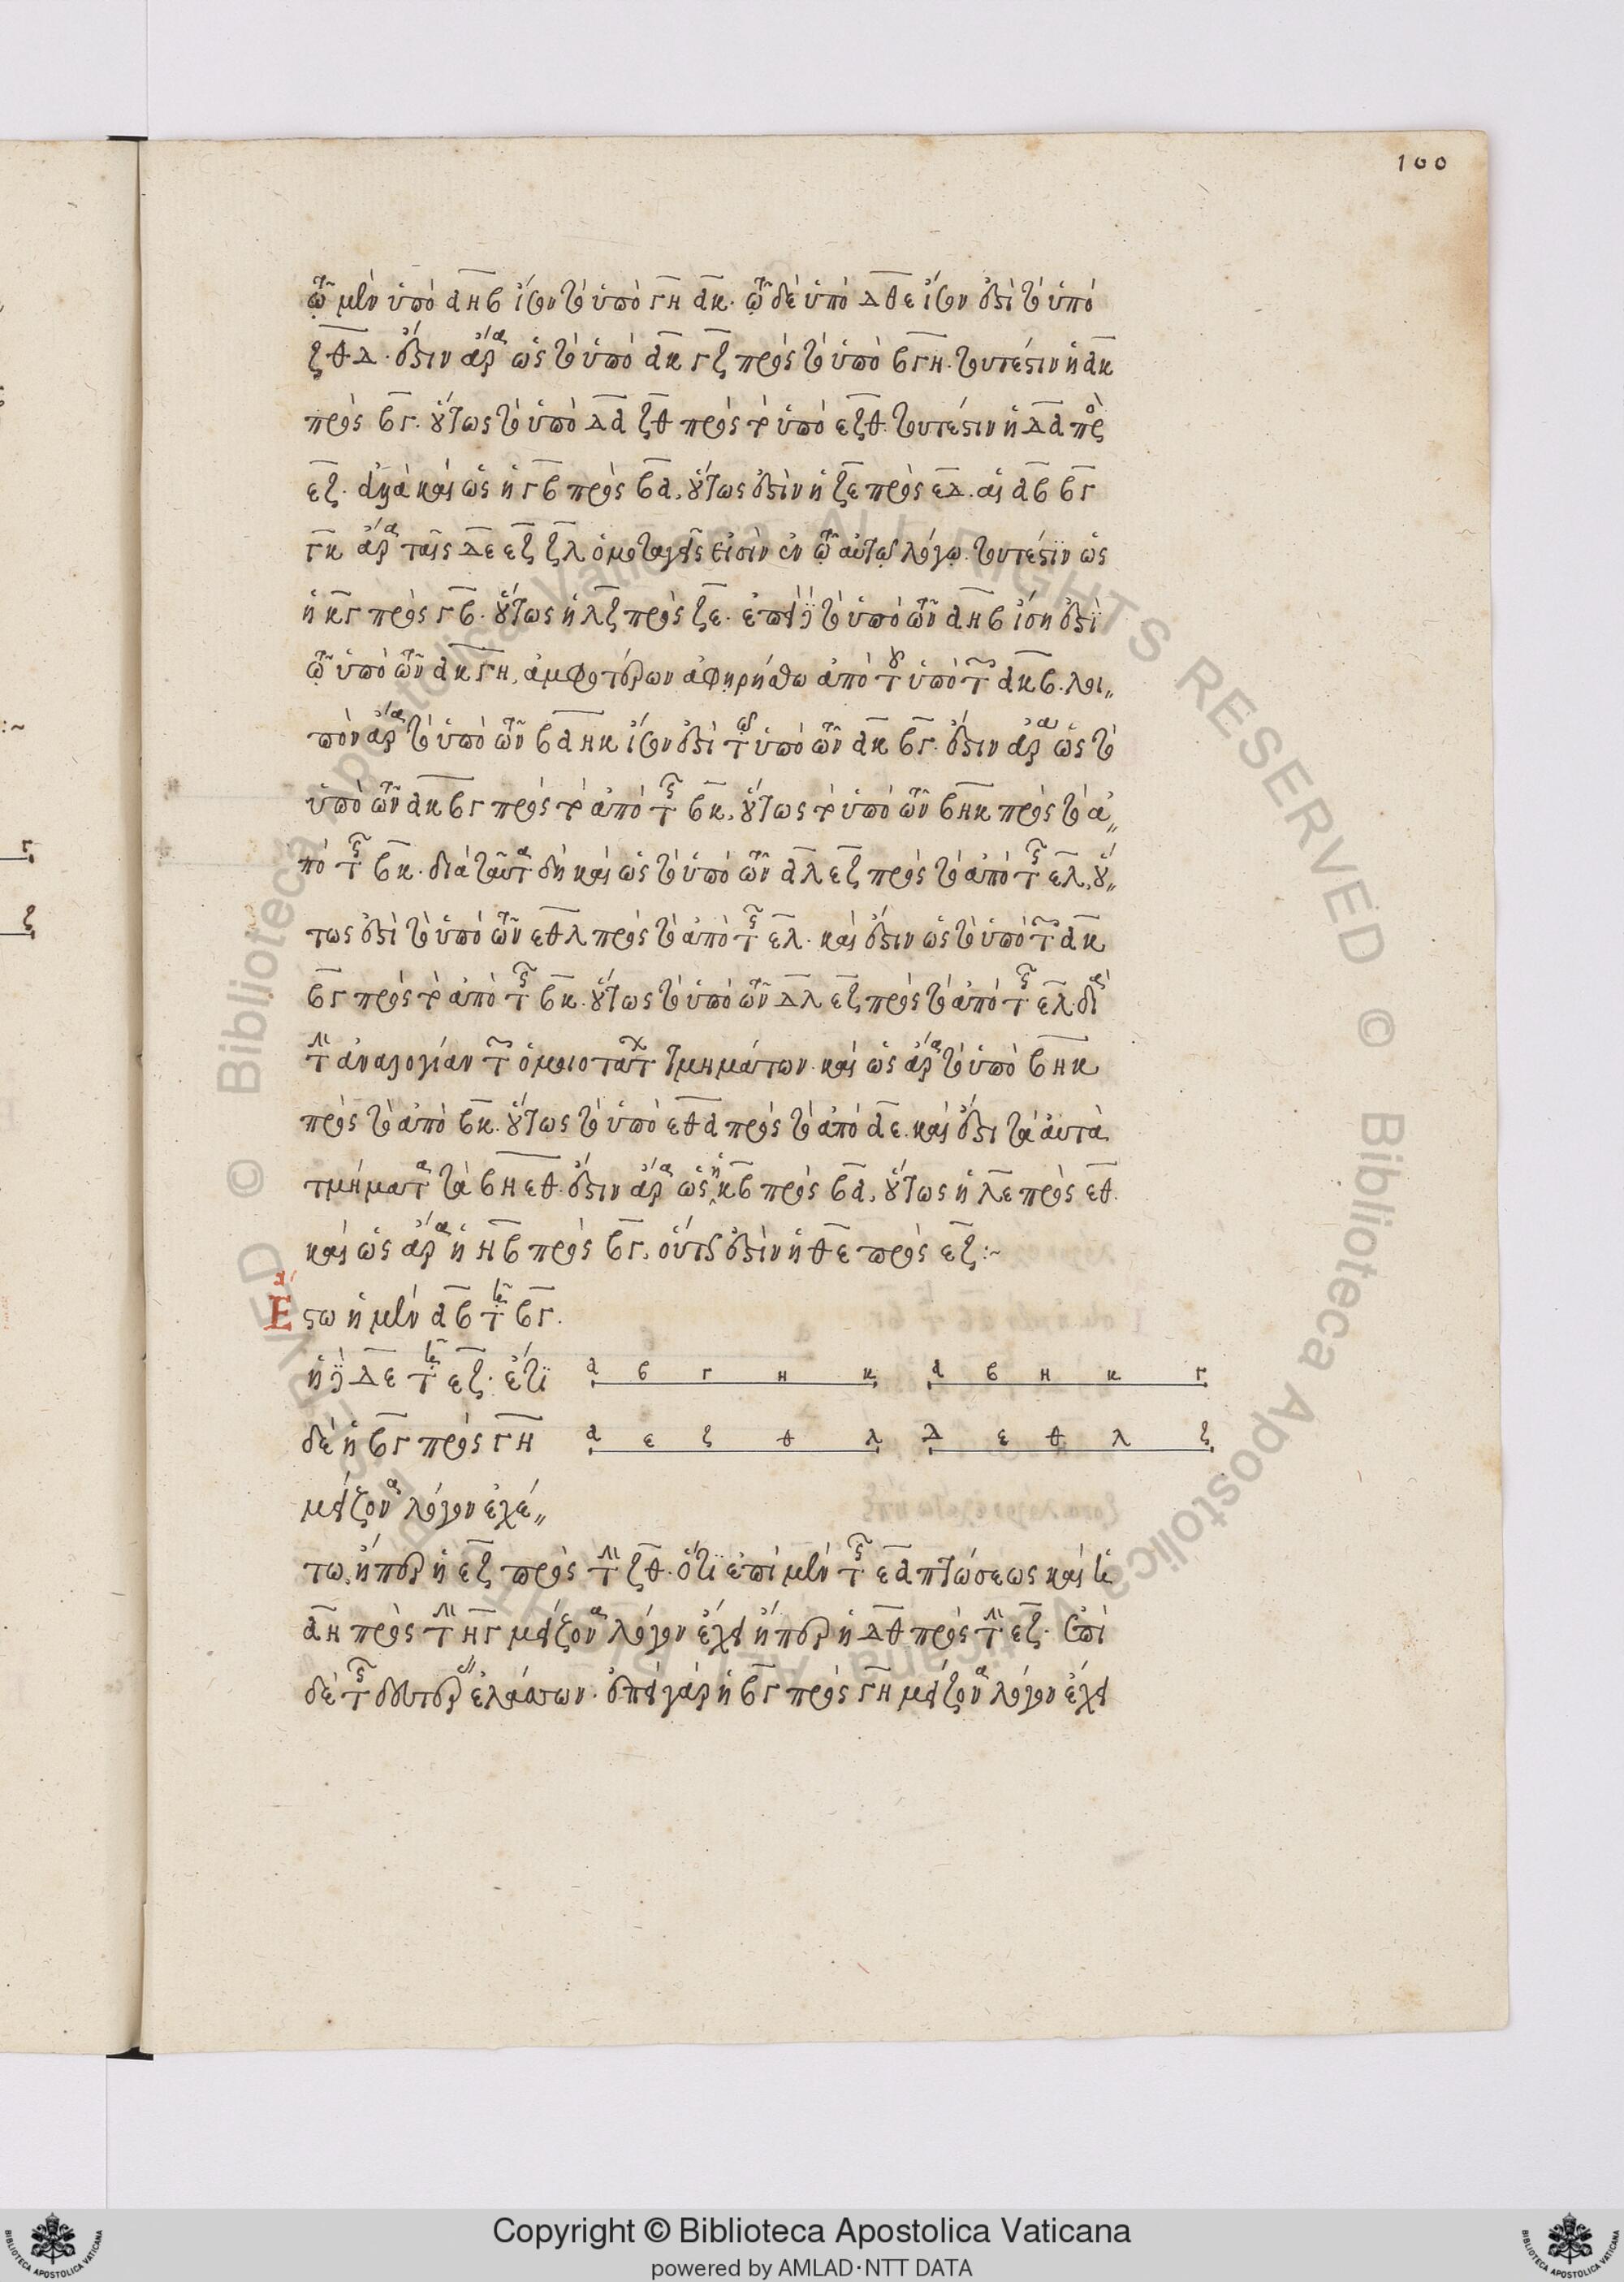 100
τῷ μὲν ὑπὸ ΑΗΒ ἴσον τὸ ὑπὸ ΓΗ ΑΚ. τῷ δὲ ὑπὸ ΔΘΕ ἴσον ἐστὶ τὸ ὑπὸ
ΖΘ Δ. ἔστιν ἄρα ὡς τὸ ὑπὸ ΑΚ ΓΖ πρὸς τὸ ὑπὸ ΒΓΗ. τουτέστιν ἡ ΑΚ
πρὸς ΒΓ. οὕτως τὸ ὑπὸ ΔΑ ΖΘ πρὸς τὸ ὑπὸ ΕΖΘ. τουτέστιν ἡ ΔΑ πρὸς
ΕΖ. ἀλλὰ καὶ ὡς ἡ ΓΒ πρὸς ΒΑ, οὕτως ἐστὶν ἡ ΖΕ πρὸς ΕΔ. αἱ ΑΒ ΒΓ
ΓΚ ἄρα ταῖς ΔΕ ΕΖ ΖΛ ὁμοταγεῖς εἰσὶν ἐν τῷ αὐτῷ λόγῳ. τουτέστιν ὡς
ἡ ΚΓ πρὸς ΓΒ. οὕτως ἡ ΛΖ πρὸς ΖΕ. ἐπεὶ δὲ τὸ ὑπὸ τῶν ΑΗΒ ἴση ἐστὶ
τῷ ὑπὸ τῶν ΑΚ ΓΗ, ἀμφοτέρων ἀφῃρήσθω ἀπὸ τοῦ ὑπὸ τῶν ΑΚΒ. λοι„
πὸν ἄρα τὸ ὑπὸ τῶν ΒΑΗΚ ἴσον ἐστὶ τῷ ὑπὸ τῶν ΑΚ ΒΓ. ἔστιν ἄρα ὡς τὸ
ὑπὸ τῶν ΑΚ ΒΓ πρὸς τὸ ἀπὸ τῆς ΒΚ, οὕτως τὸ ὑπὸ τῶν ΒΗΚ πρὸς τὸ ἀ„
πὸ τῆς ΒΚ. διὰ ταῦτα δὴ καὶ ὡς τὸ ὑπὸ τῶν ΑΛ ΕΖ πρὸς τὸ ἀπὸ τῆς ΕΛ, οὕ„
τως ἐστὶ τὸ ὑπὸ τῶν ΕΘΛ πρὸς τὸ ἀπὸ τῆς ΕΛ. καὶ ἔστιν ὡς τὸ ὑπὸ τῶν ΑΚ
ΒΓ πρὸς τὸ ἀπὸ τῆς ΒΚ. οὕτως τὸ ὑπὸ τῶν ΔΛ ΕΖ πρὸς τὸ ἀπὸ τῆς ΕΛ. διὰ
τὴν ἀναλογίαν τῶν ὁμοιοταγῶν τμημάτων. καὶ ὡς ἄρα τὸ ὑπὸ ΒΗΚ
πρὸς τὸ ἀπὸ ΒΚ. οὕτως τὸ ὑπὸ ΕΘΑ πρὸς τὸ ἀπὸ ΑΕ. καὶ ἔστι τὰ αὐτὰ
τμήματα τὰ ΒΗ ΕΘ. ἔστιν ἄρα ὡς ἡ ΚΒ πρὸς ΒΑ, οὕτως ἡ ΛΕ πρὸς ΕΘ.
καὶ ὡς ἄρα ἡ ΗΒ πρὸς ΒΓ, οὕτως ἐστὶν ἡ ΘΕ πρὸς ΕΖ :~
α΄
Ἔστω ἡ μὲν ΑΒ τῇ ΒΓ.
ἡ δὲ ΔΕ τῇ ΕΖ. ἔτι
Α Β Γ Η Κ Α Β Η Κ Γ
δὲ ἡ ΒΓ πρὸς ΓΗ
Α Ε Ζ Θ Λ Δ Ε Θ Λ Ζ
μείζονα λόγον ἐχέ„
τω, ἤπερ ἡ ΕΖ πρὸς τὴν ΖΘ. ὅτι ἐπὶ μὲν τῆς ΕΑ πτώσεως καὶ
ΑΗ πρὸς τὴν ΗΓ μείζονα λόγον ἔχει ἤπερ ἡ ΔΘ πρὸς τὴν ΕΖ. ἐπὶ
δὲ τῆς δευτέρας ἐλάσσων. ἐπεὶ γὰρ ἡ ΒΓ πρὸς ΓΗ μείζονα λόγον ἔχει
Copyright © Biblioteca Apostolica Vaticana
powered by AMLAD·NTT DATA